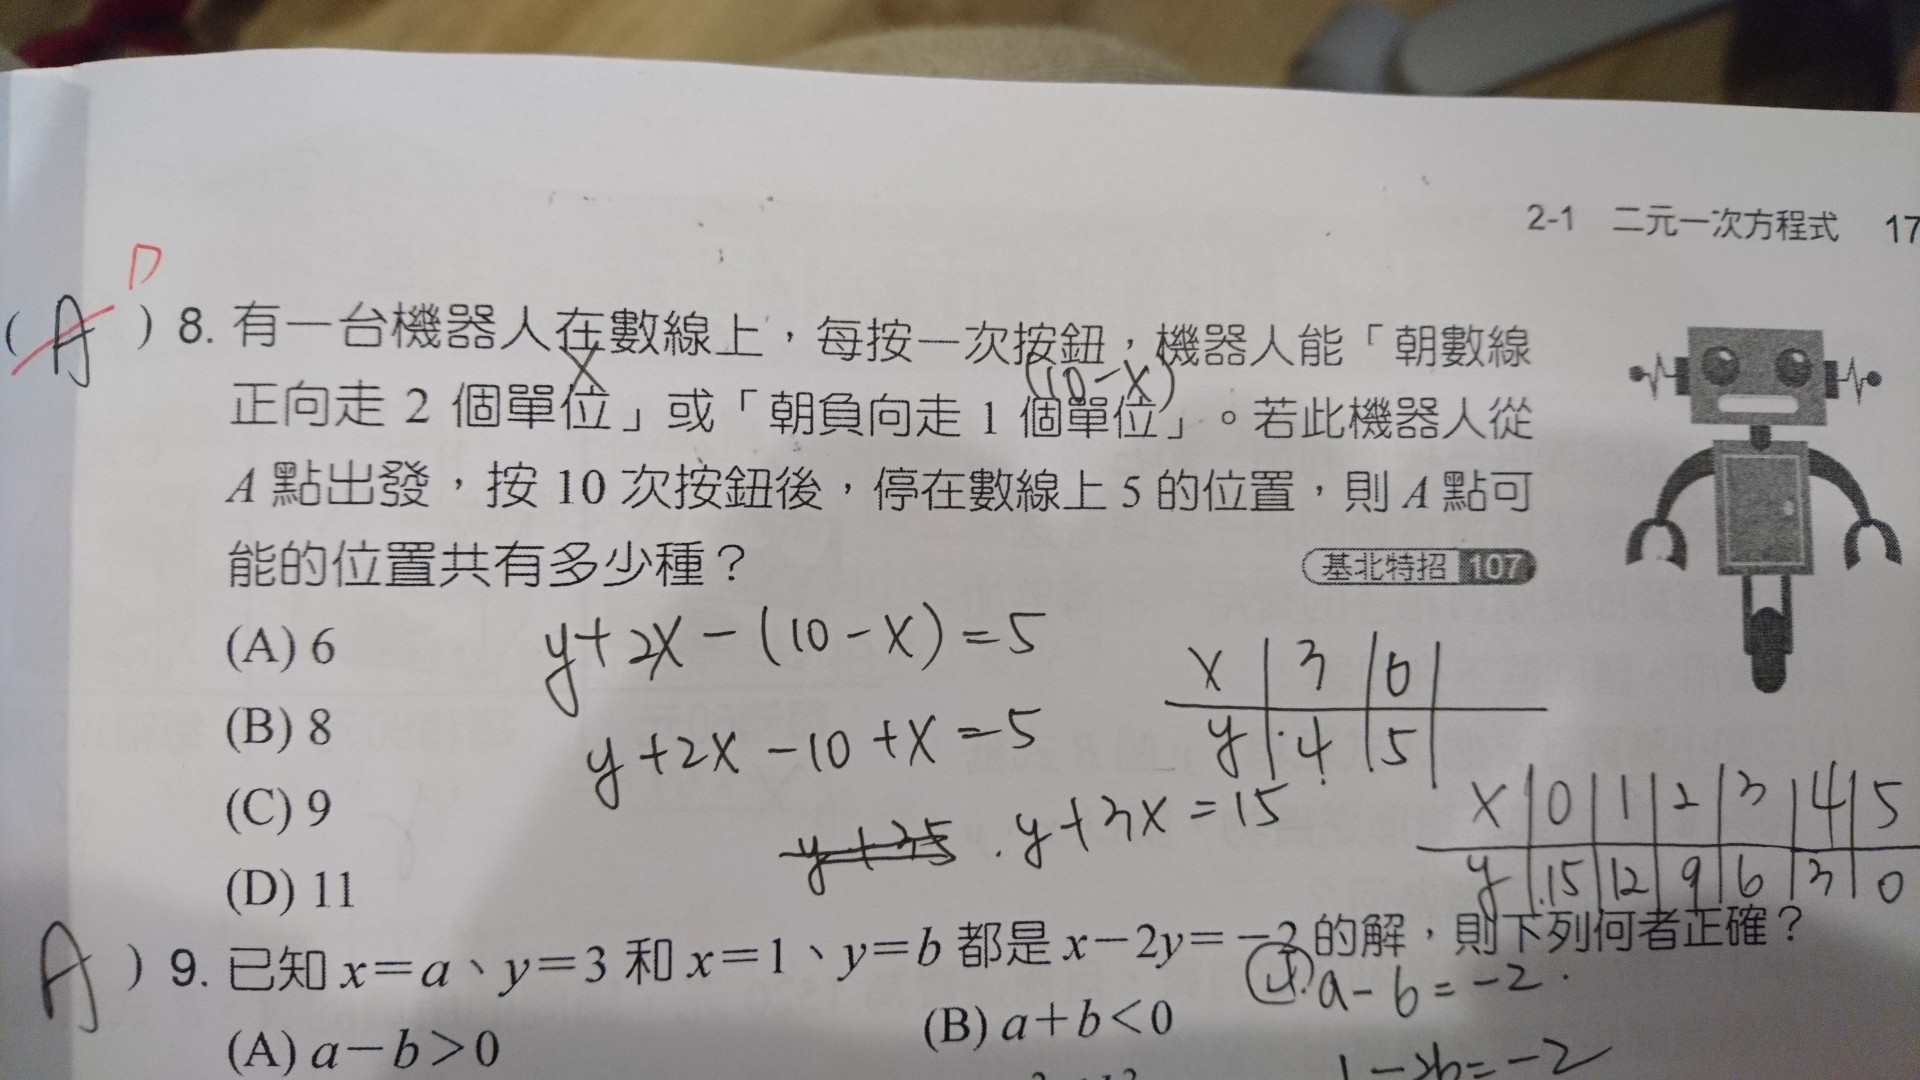 2-1 二元一次方程式 17
D
(A) 8. 有一台機器人在數線上，每按一次按鈕，機器人能「朝數線
x (10-x)
正向走 2 個單位」或「朝負向走 1 個單位」。若此機器人從
A 點出發，按 10 次按鈕後，停在數線上 5 的位置，則 A 點可
能的位置共有多少種？
基北特招 107
(A) 6
y+2x-(10-x)=5
x | 3 | 0 |
(B) 8
y+2x-10+x=5
y | 4 | 5 |
(C) 9
y+3x=15
x | 0 | 1 | 2 | 3 | 4 | 5
(D) 11
y | 15 | 12 | 9 | 6 | 3 | 0
A) 9. 已知 x=a、y=3 和 x=1、y=b 都是 x-2y=-2 的解，則下列何者正確？
a-6=-2
(A) a-b>0
(B) a+b<0
1-2b=-2